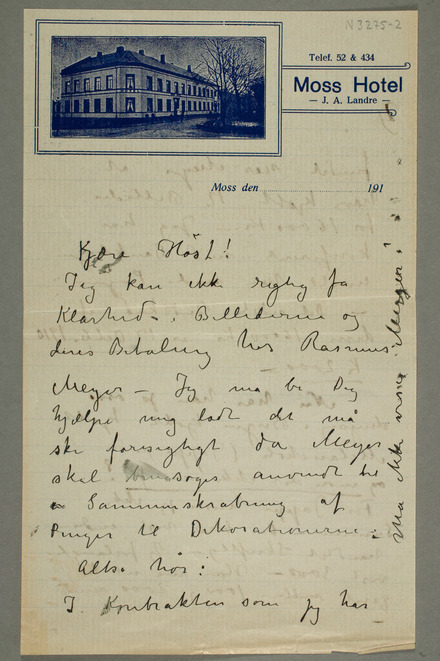 N 3275-2
Telef. 52 & 434
Moss Hotel
— J. A. Landre —
Moss den 191
Kjære Höst!
Jeg kan ikke rigtig få
Klarhed i Billederne og
deres Betaling hos Rasmus
Meyer — Jeg må be Dig
hjælpe mig ladt det må
ske forsigtigt da Meyer
skal søges anvendt til
Sammenskrabning af
Penger til Dekorationerne:
Altså hör:
I Kontrakten som jeg har
Må ikke vises Meyer!